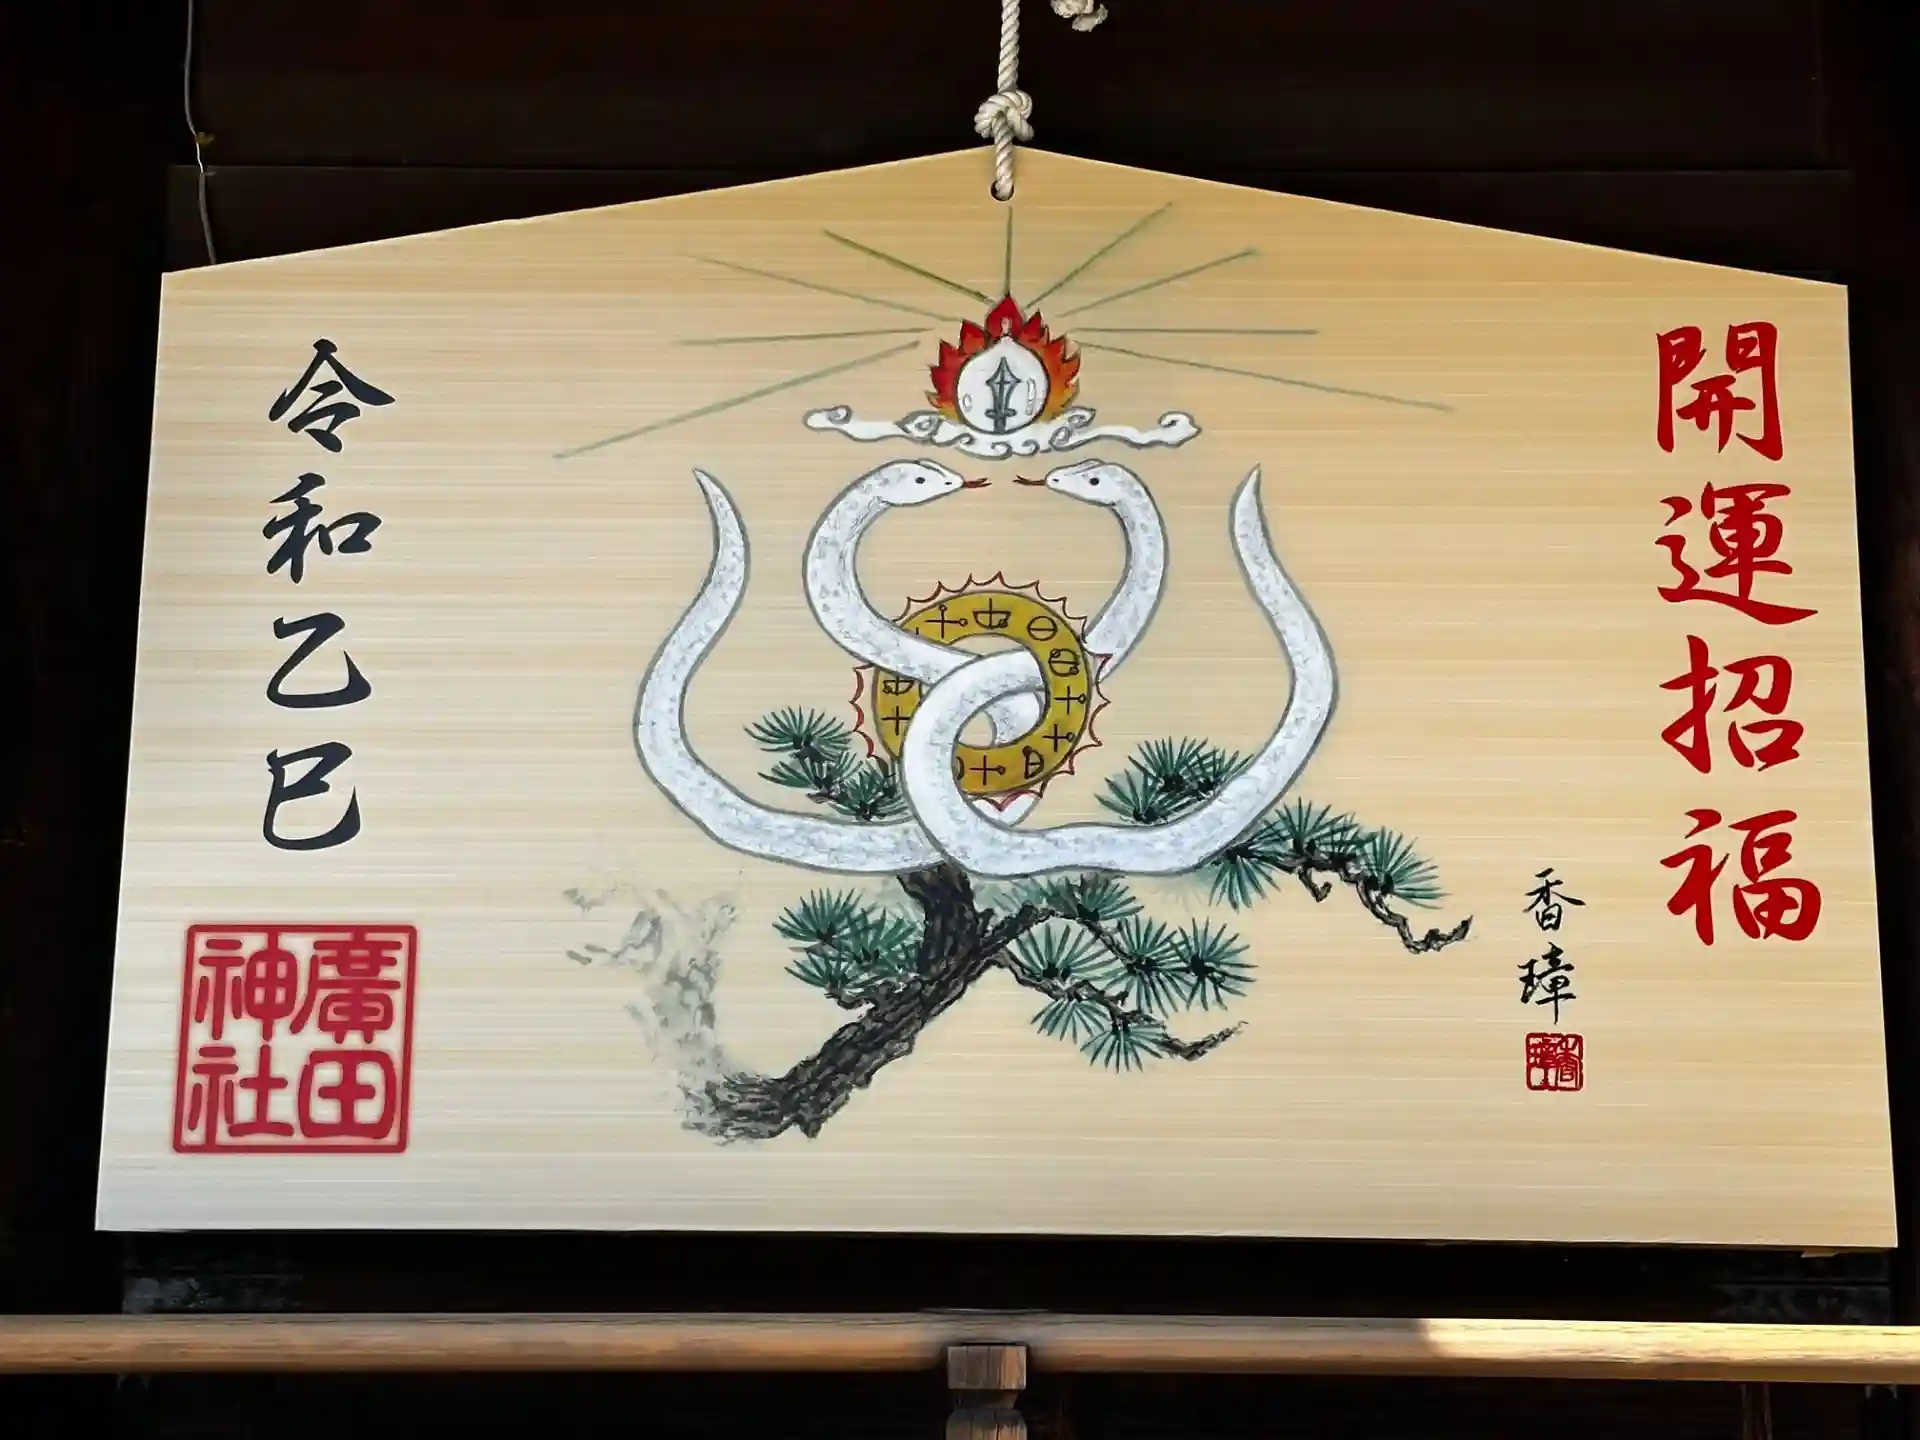 開運招福
香璋
香璋
令和乙巳
廣田
神社